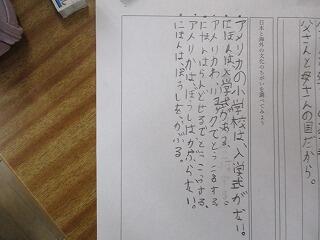 父さんと母さんの国だから。
日本と海外の文化のちがいを調べてみよう
アメリカの小学校は、入学式がない。
にほんは、入学式がある。
アメリカわ、リュックでとうこうする
にほんはらんどせるでとうこうする。
アメリカは、ぼうしはかぶらない。
にほんは、ぼうしをかぶる。